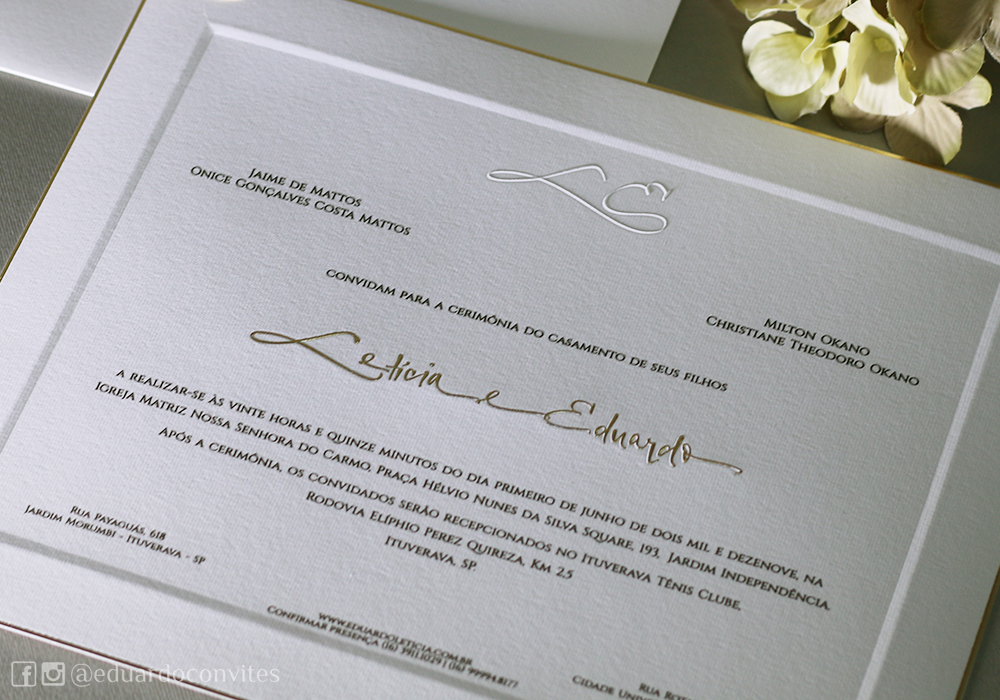 L E
Jaime de Mattos
Onice Gonçalves Costa Mattos
Milton Okano
Christiane Theodoro Okano
convidam para a cerimônia do casamento de seus filhos
Letícia e Eduardo
a realizar-se às vinte horas e quinze minutos do dia primeiro de junho de dois mil e dezenove, na
Igreja Matriz Nossa Senhora do Carmo, Praça Hélvio Nunes da Silva Square, 193, Jardim Independência.
Após a cerimônia, os convidados serão recepcionados no Ituverava Tênis Clube,
Rodovia Elíphio Perez Quireza, Km 2,5
Ituverava, SP.
Rua Payaguás, 618
Jardim Morumbi - Ituverava - SP
www.eduardoleticia.com.br
Confirmar presença (16) 3911.1029 | (16) 99994.8177
Rua
Cidade
@eduardoconvites